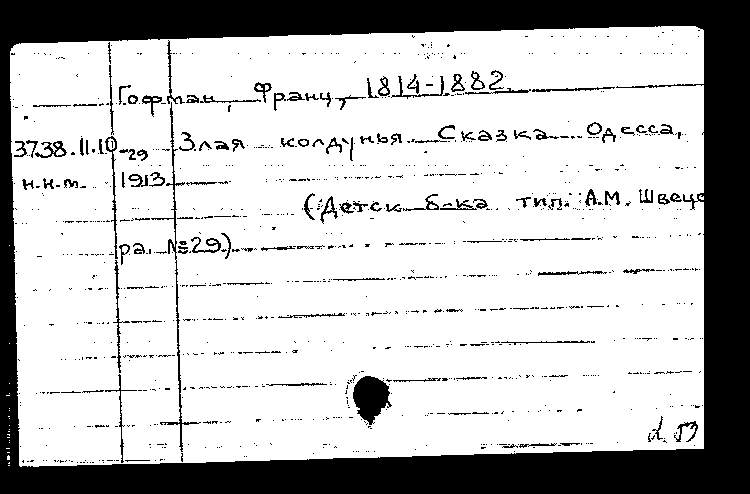 Гофман, Франц, 1814-1882.
3738.11.10-29 Злая колдунья. Сказка. Одесса,
н.н.т. 1913.
(Детск. б-ка тип. А.М. Швеце
ра. №29.)
d. 53